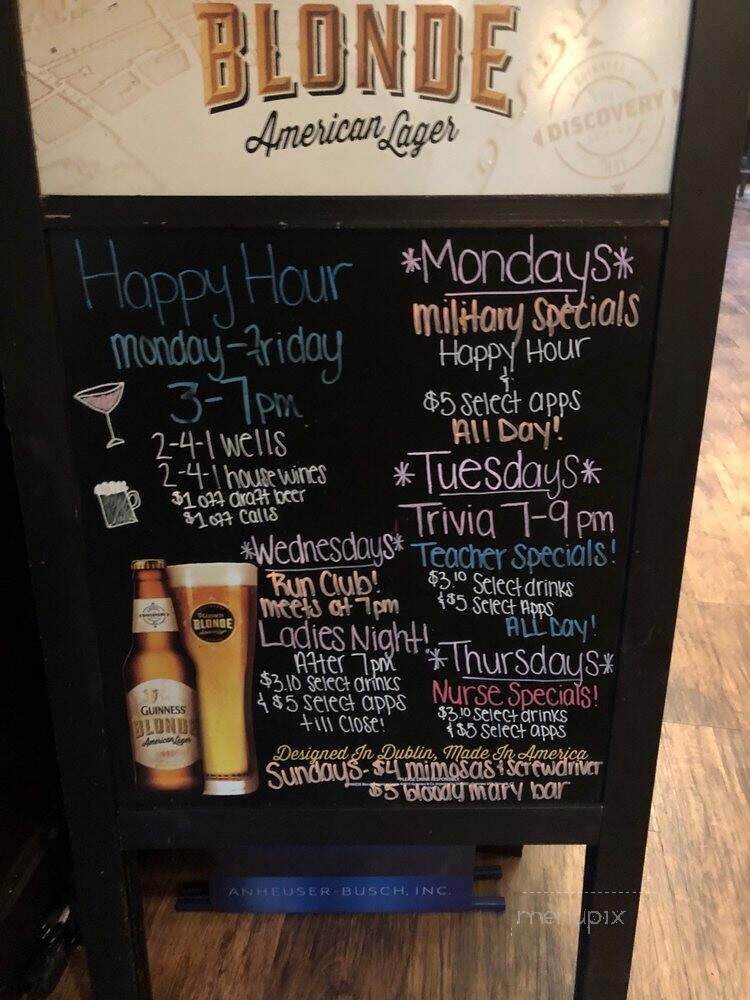 BLONDE
American Lager
DISCOVERY
Happy Hour
monday-Friday
3-7pm
2-4-1 wells
2-4-1 house wines
$1 off draft beer
$1 off calls
*Mondays*
military Specials
Happy Hour
&
$5 select apps
All Day!
*Tuesdays*
Trivia 7-9 pm
Teacher Specials!
$3.10 Select drinks
& $5 Select Apps
ALL Day!
*Wednesdays*
Run Club!
meets at 7pm
Ladies Night!
After 7pm
$3.10 select drinks
& $5 select apps
till Close!
*Thursdays*
Nurse Specials!
$3.10 Select drinks
& $5 Select apps
BLONDE
GUINNESS
BLONDE
American Lager
Designed In Dublin, Made In America
Sundays- $4 mimosas & screwdriver
$5 bloody mary bar
ANHEUSER-BUSCH, INC.
menupix